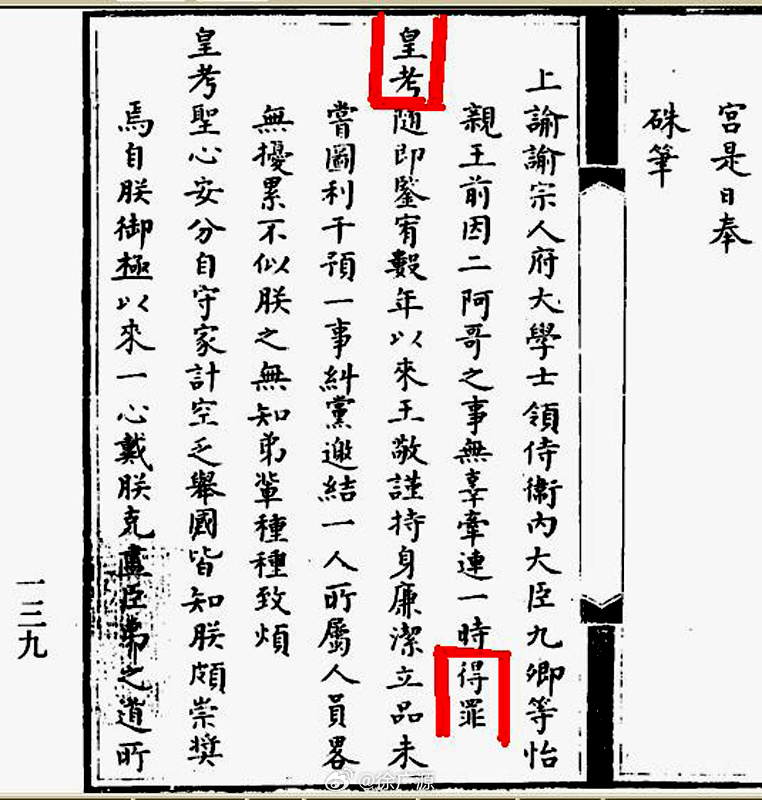 宮是日奉
硃筆
上諭諭宗人府大學士領侍衛內大臣九卿等怡
親王前因二阿哥之事無辜牽連一時得罪
皇考隨即鑒宥數年以來王敬謹持身廉潔立品未
嘗圖利干預一事糾黨邀結一人所屬人員畧
無擾累不似朕之無知弟輩種種致煩
皇考聖心安分自守家計空乏舉國皆知朕頗崇獎
焉自朕御極以來一心戴朕克盡臣弟之道所
一三九
@徐广源